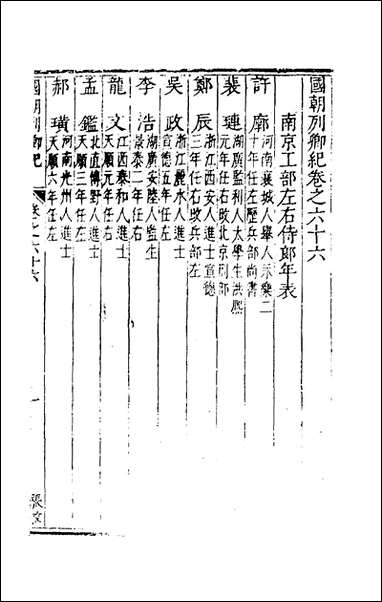 國朝列卿紀卷之六十六
南京工部左右侍郎年表
許廓
河南襄城人舉人永樂二
十年任左歷兵部尚書
裴璉
湖廣監利人太學生洪熙
元年任右改北京刑部
鄭辰
浙江西安人進士宣德
三年任右改兵部左
吳政
浙江麗水人進士
宣德五年任左
李浩
湖廣安陸人監生
景泰二年任右
龍文
江西泰和人進士
天順元年任右
孟鑑
北直博野人進士
天順三年任左
郝璜
河南光州人進士
天順六年任左
國朝列卿紀
卷之六十六
一